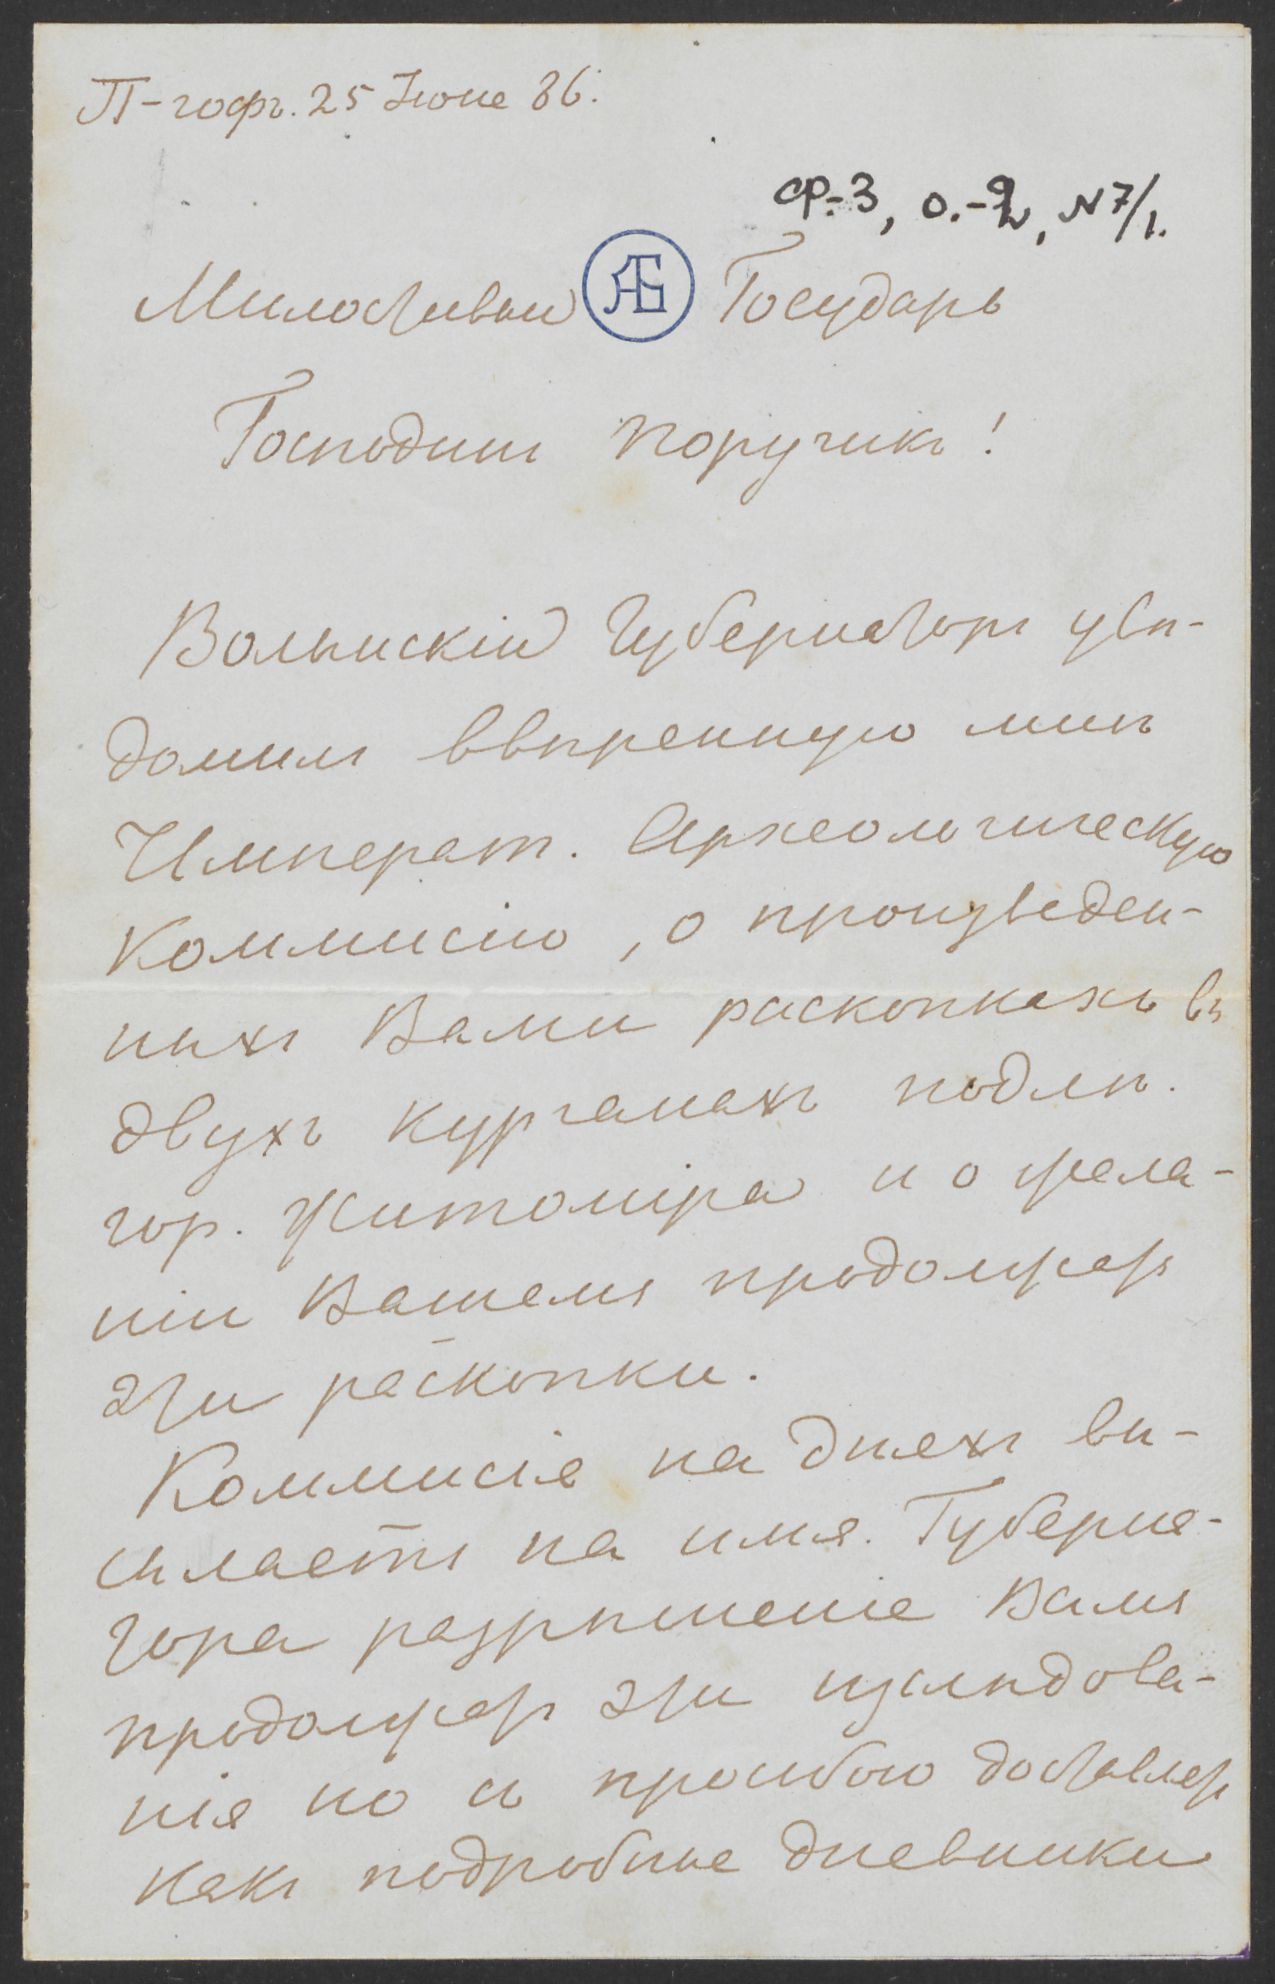 П-гофъ. 25 Іюне 86.
ф.-3, о.-2, N 7/1.
Милостивый АБ Государь
Господинъ Поручикъ!
Волынскій Губернаторъ увѣ-
домилъ ввѣренную мнѣ
Императ. Археологическую
Коммисію, о произведен-
ныхъ Вами раскопкахъ въ
двухъ курганахъ подлѣ.
гор. Житоміра и о жела-
ніи Вашемъ продолжать
эти раскопки.
Коммисія на дняхъ вы-
сылаетъ на имя Губерна-
тора разрѣшеніе Вамъ
продолжать эти изслѣдова-
нія но съ просьбою доставлять
какъ подробные дневники